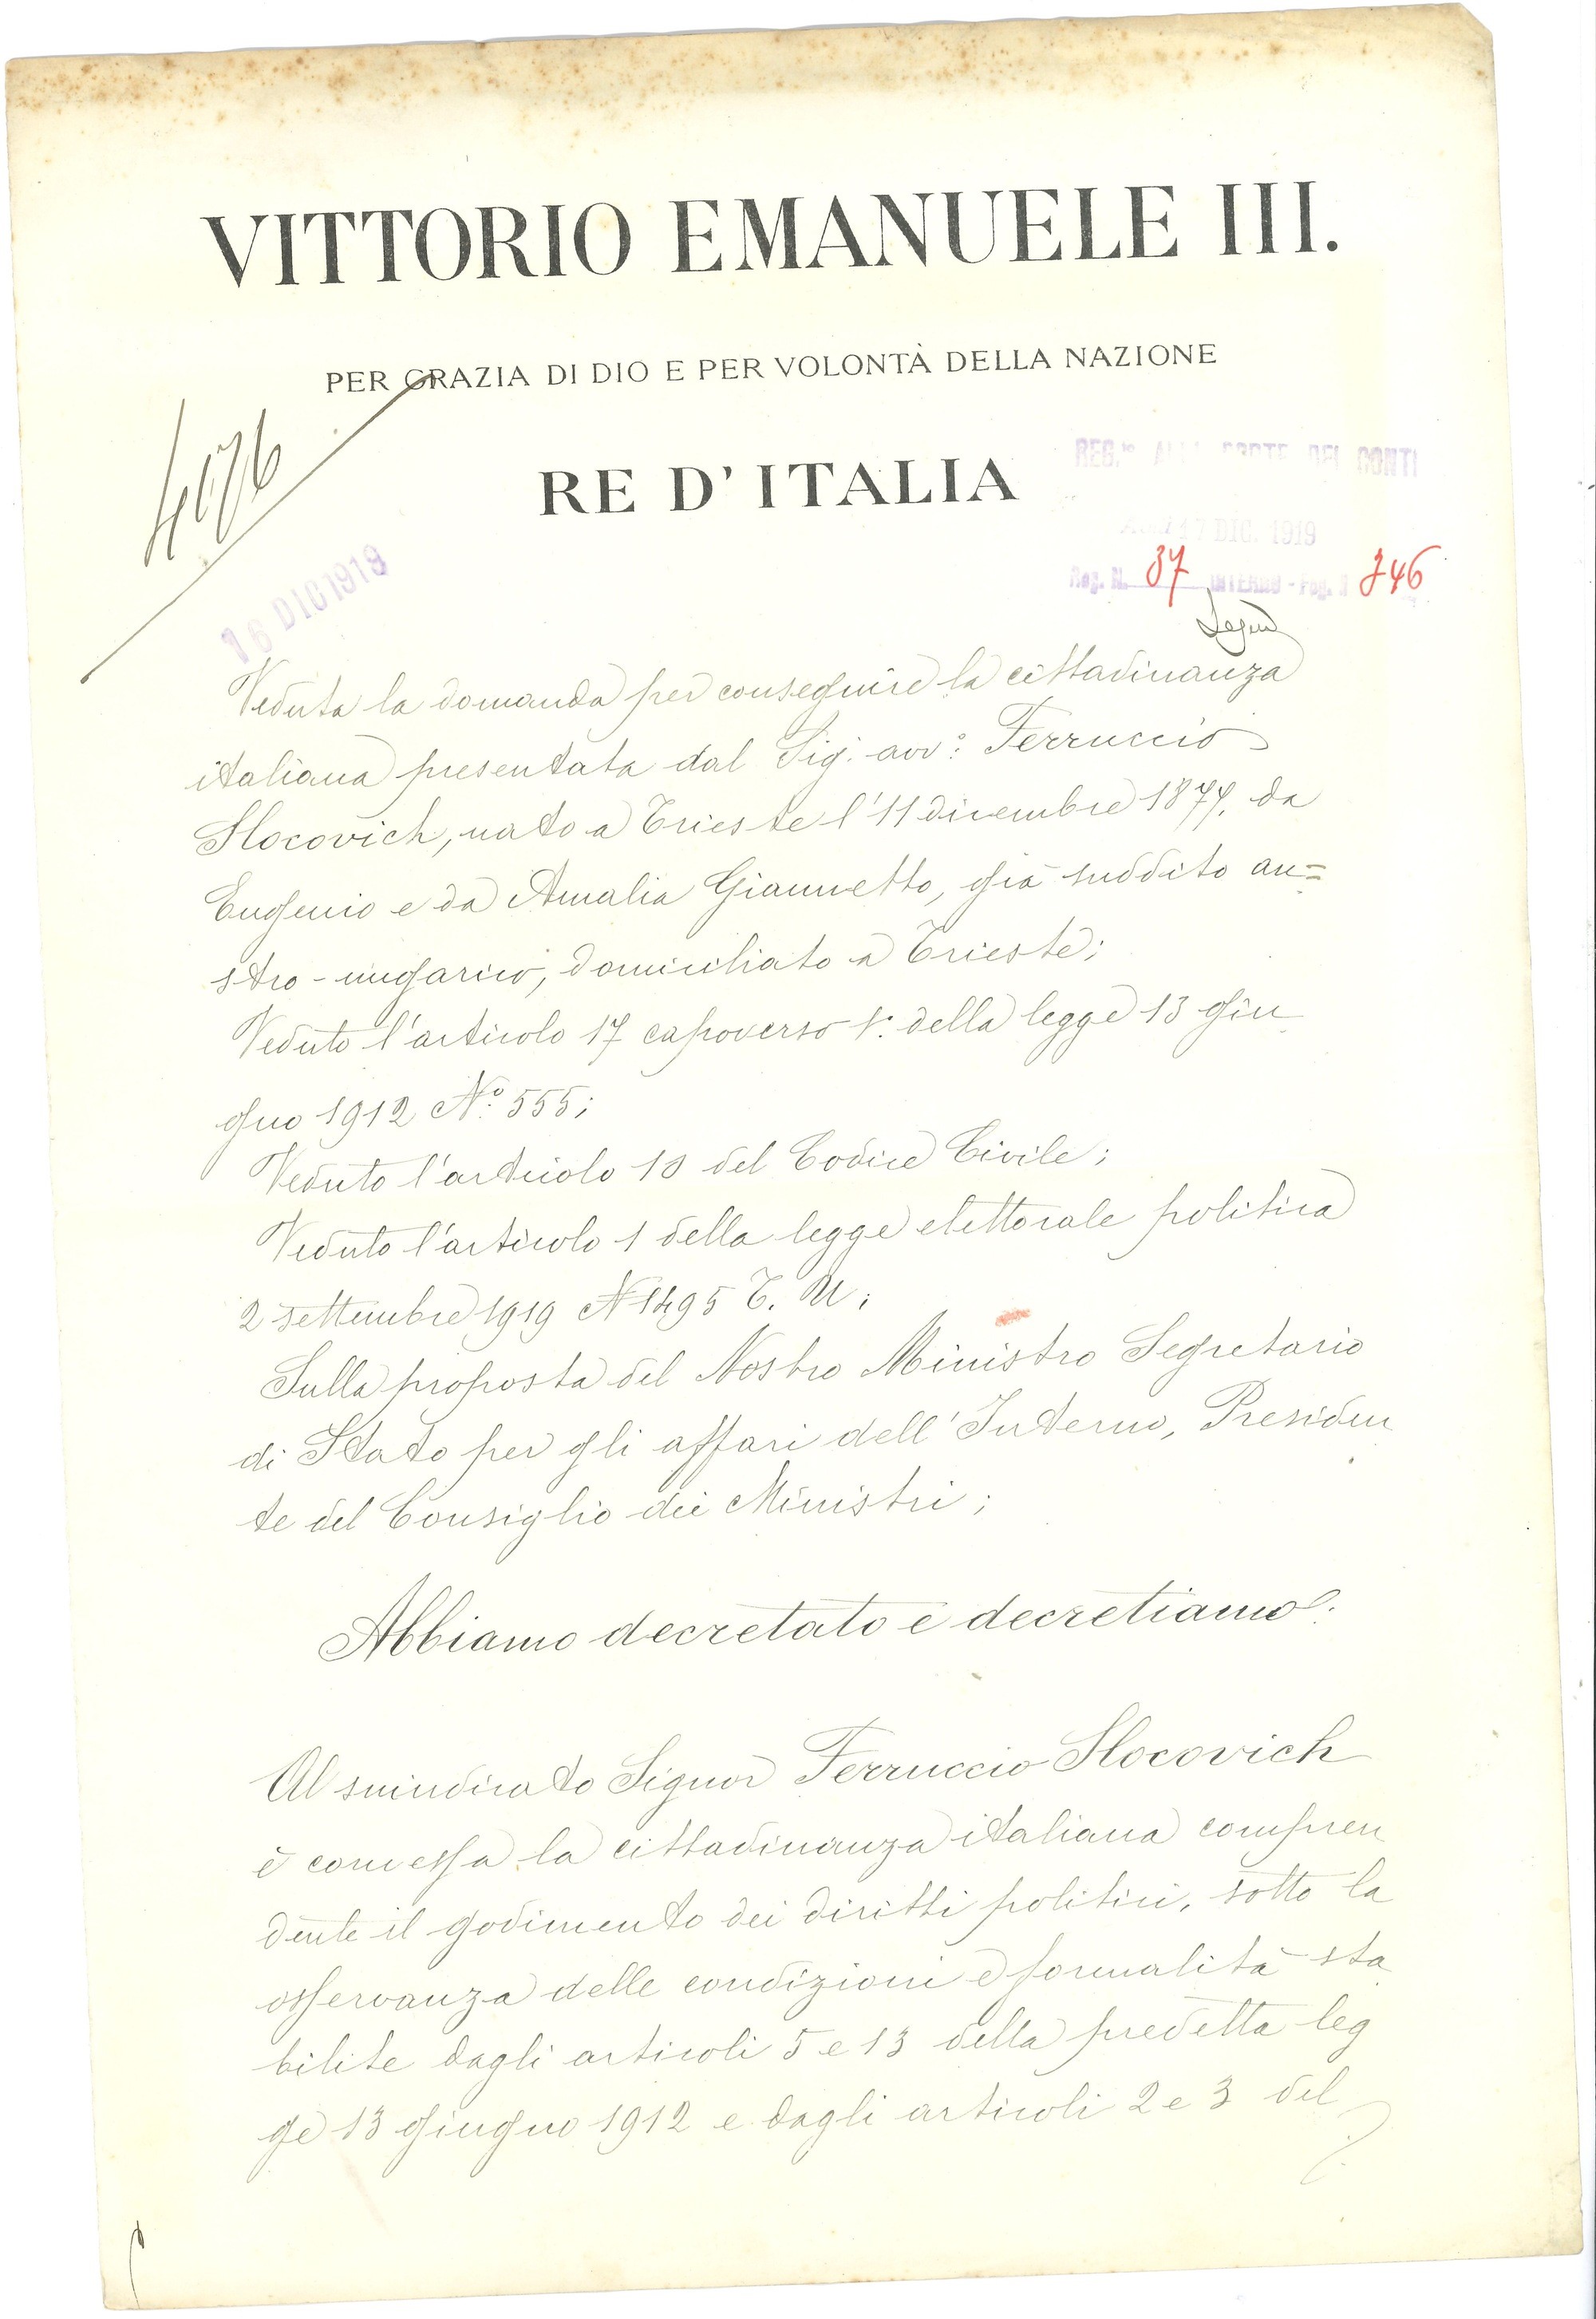 VITTORIO EMANUELE III.
PER GRAZIA DI DIO E PER VOLONTÀ DELLA NAZIONE
RE D'ITALIA
4676
16 DIC 1919
REG.to ALLA CORTE DEI CONTI
17 DIC. 1919
Reg. N. 37 INTERNO - Fog. N 346
Veduta la domanda per conseguire la cittadinanza
italiana presentata dal Sig. avv.o Ferruccio
Slocovich, nato a Trieste l'11 dicembre 1877, da
Eugenio e da Amalia Giannetto, già suddito au=
stro-ungarico, domiciliato a Trieste;
Veduto l'articolo 17 capoverso 1.° della legge 13 giu
gno 1912 N.o 555;
Veduto l'articolo 10 del Codice Civile;
Veduto l'articolo 1 della legge elettorale politica
2 settembre 1919 N 1495 T. U;
Sulla proposta del Nostro Ministro Segretario
di Stato per gli affari dell'Interno, Presiden
te del Consiglio dei Ministri;
Abbiamo decretato e decretiamo:
Al suindicato Signor Ferruccio Slocovich
è concessa la cittadinanza italiana compren
dente il godimento dei diritti politici, sotto la
osservanza delle condizioni e formalità sta
bilite dagli articoli 5 e 13 della predetta leg
ge 13 giugno 1912 e dagli articoli 2 e 3 del